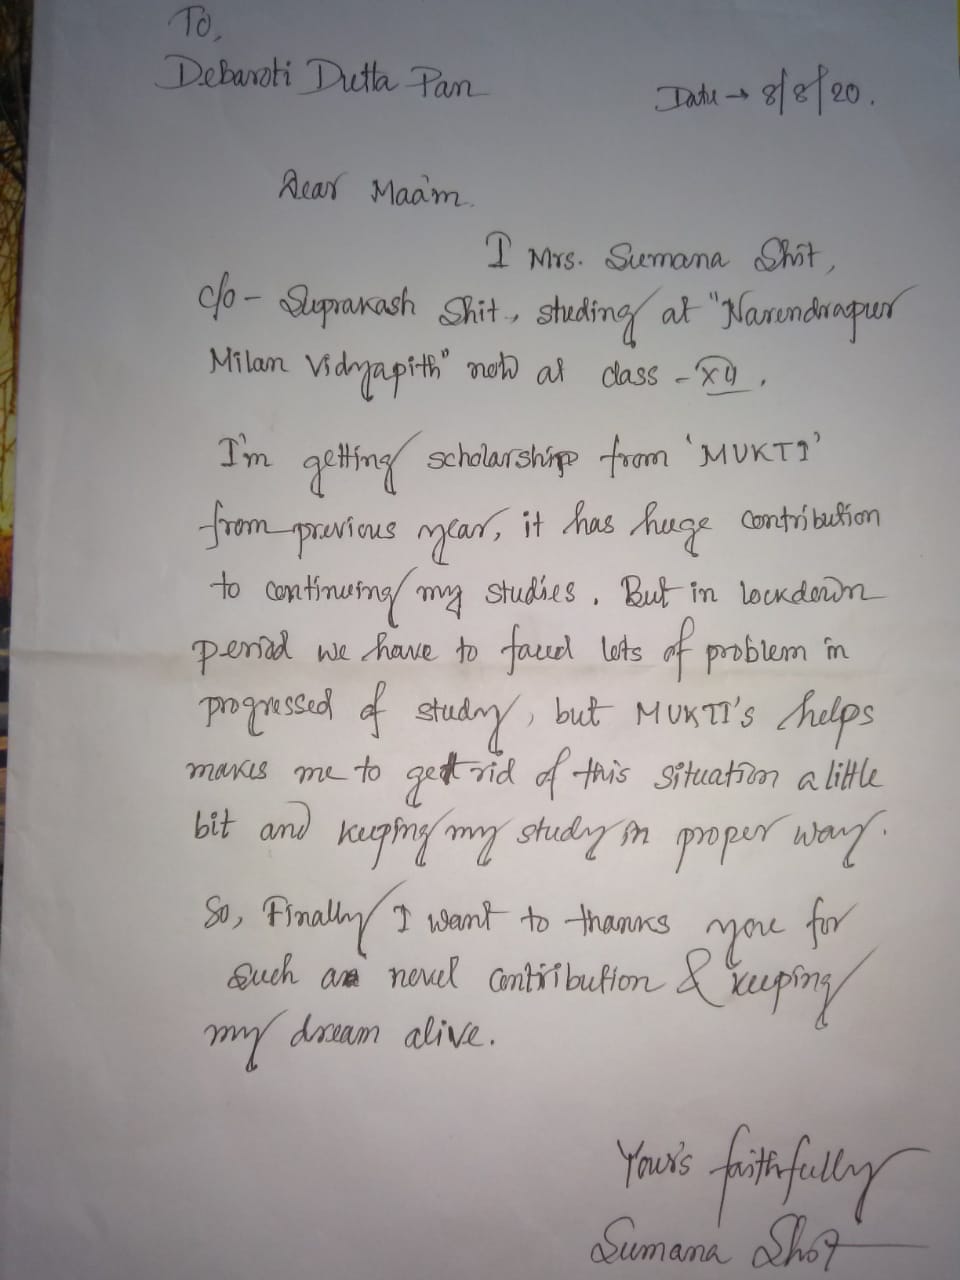 To,
Debaroti Dutta Pan
Date → 8/8/20.
Dear Maa'm.
I Mrs. Sumana Shit,
c/o - Suprakash Shit, studing at "Narendrapur
Milan Vidyapith" now at class - XII.
I'm getting scholarship from 'MUKTI'
from previous year, it has huge contribution
to continuing my studies. But in lockdown
period we have to faced lots of problem in
progressed of study, but MUKTI's helps
makes me to get rid of this situation a little
bit and keeping my study in proper way.
So, Finally I want to thanks you for
such a novel contribution & keeping
my dream alive.
Your's faithfully
Sumana Shit